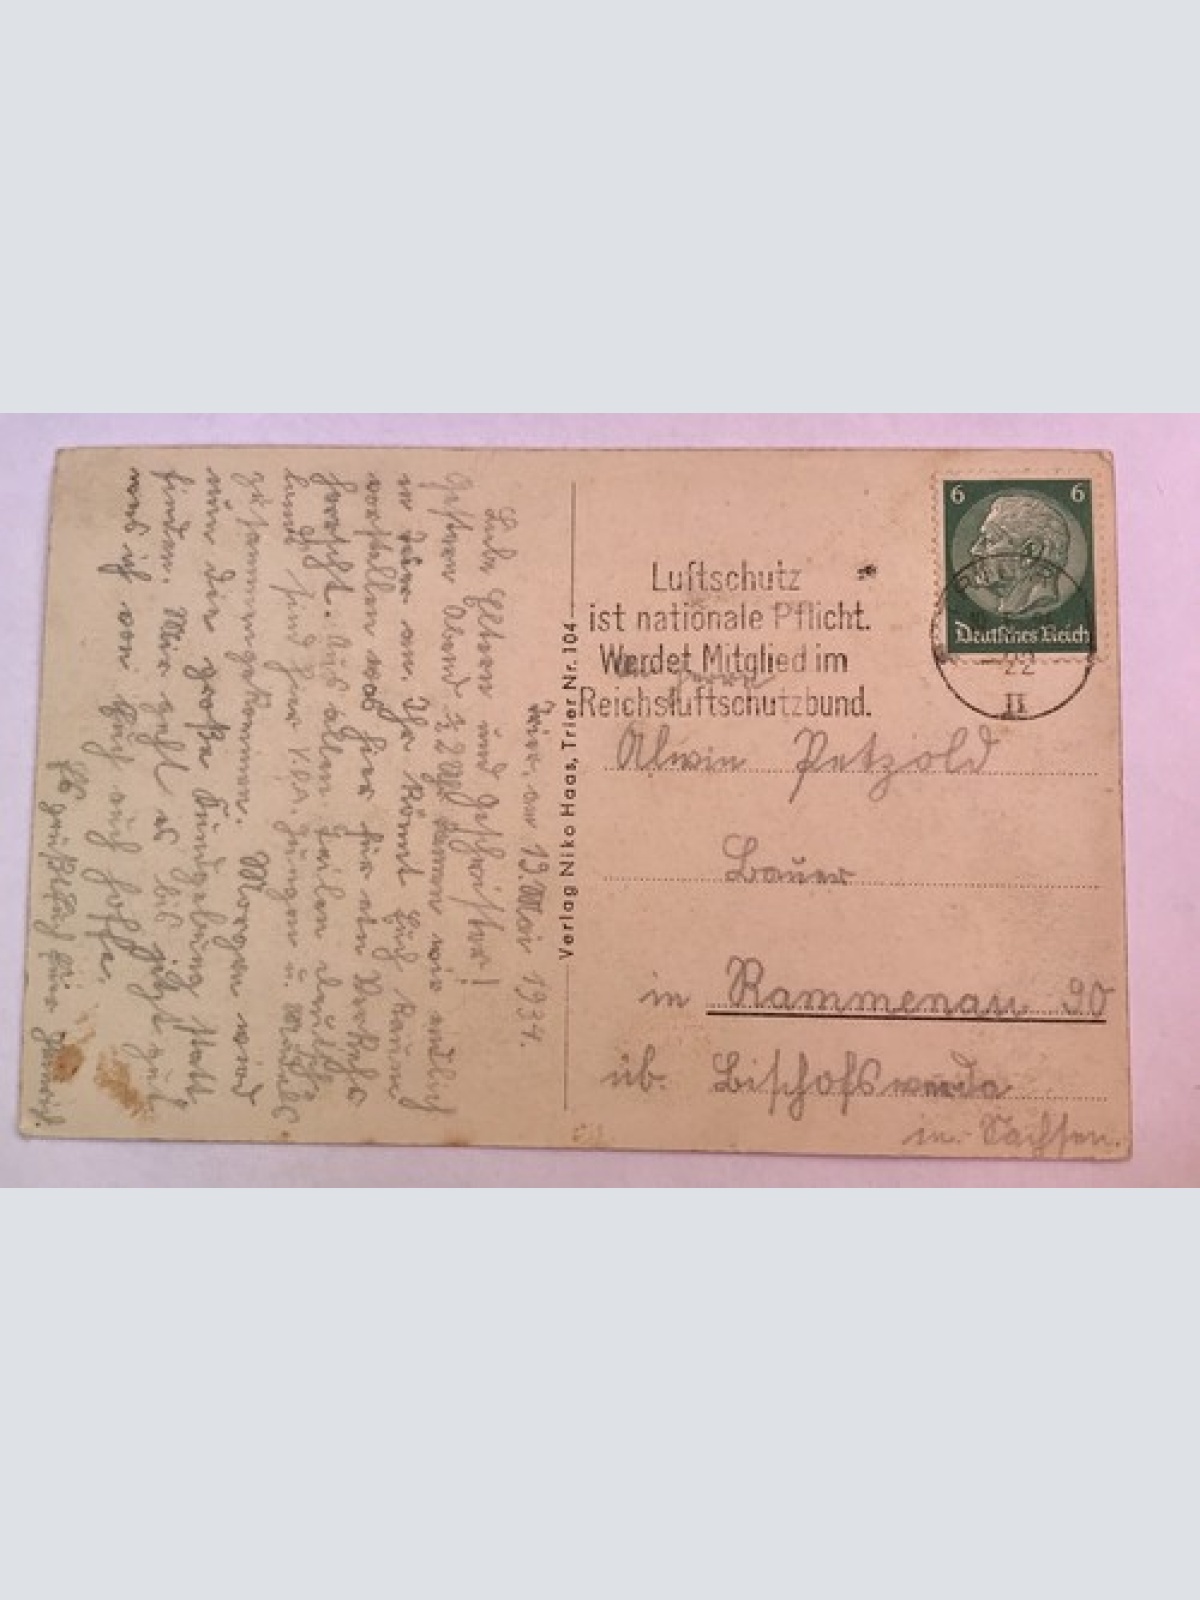 Trier, am 19. Mai 1934.
Liebe Eltern und Geschwister!
Gestern Abend ½ 2 Uhr kamen wir endlich
in Trier an. Ihr könnt Euch kaum
vorstellen was hier für ein Verkehr
herrscht. Aus allen Teilen Deutsch-
lands sind hier V.D.A. Jungen u. Mädels
zusammengekommen. Morgen wird
nun die große Kundgebung statt
finden. Mir geht es bis jetzt gut
was ich von Euch auch hoffe.
Es grüßt Euch Euer
Verlag Niko Haas, Trier Nr. 104
6 6
Deutsches Reich
TRIER
22
II
Luftschutz
ist nationale Pflicht.
Werdet Mitglied im
Reichsluftschutzbund.
Herrn
Alwin Petzold
Bauer
in Rammenau 90
üb. Bischofswerda
in Sachsen.